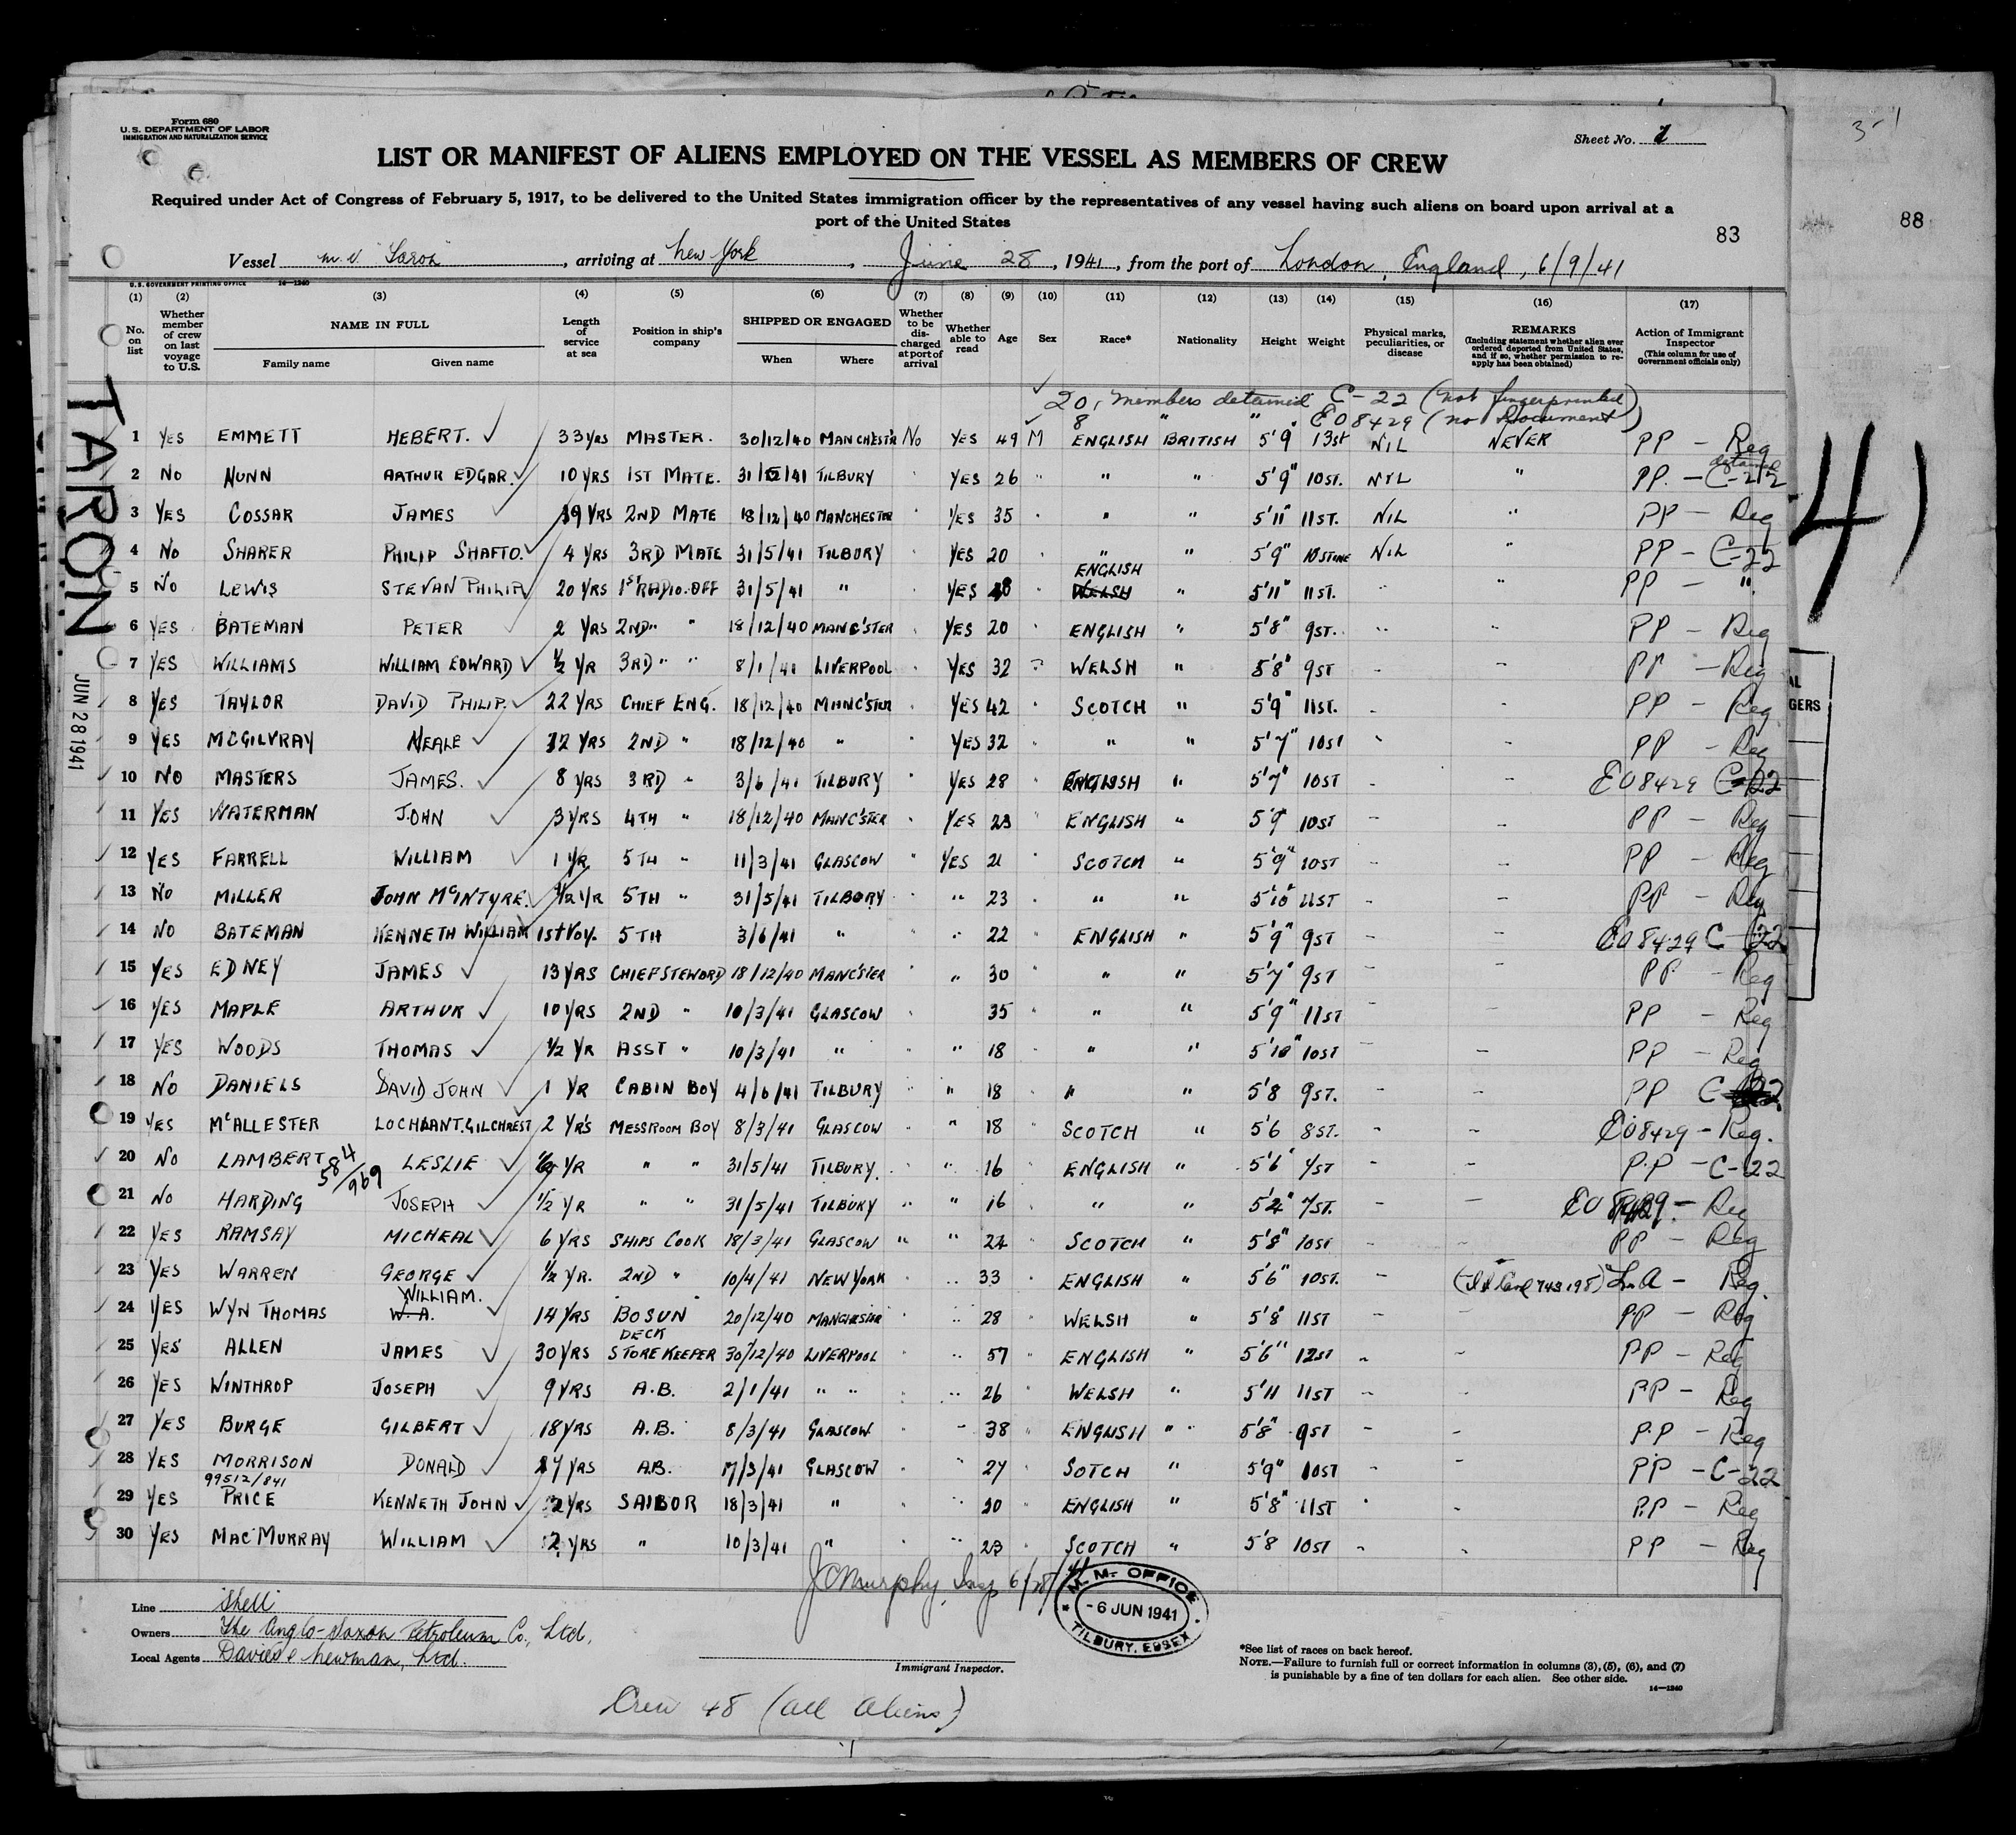 3-1
88
Form 680
U.S. DEPARTMENT OF LABOR
IMMIGRATION AND NATURALIZATION SERVICE
Sheet No. 1
LIST OR MANIFEST OF ALIENS EMPLOYED ON THE VESSEL AS MEMBERS OF CREW
Required under Act of Congress of February 5, 1917, to be delivered to the United States immigration officer by the representatives of any vessel having such aliens on board upon arrival at a
port of the United States
83
Vessel m.v. "Taron", arriving at New York, June 28, 1941, from the port of London, England, 6/9/41
U.S. GOVERNMENT PRINTING OFFICE 14—1240
(1) (2) (3) (4) (5) (6) (7) (8) (9) (10) (11) (12) (13) (14) (15) (16) (17)
No. on list
Whether member of crew on last voyage to U.S.
NAME IN FULL
Family name
Given name
Length of service at sea
Position in ship's company
SHIPPED OR ENGAGED
When
Where
Whether to be discharged at port of arrival
Whether able to read
Age
Sex
Race*
Nationality
Height
Weight
Physical marks, peculiarities, or disease
REMARKS
(Including statement whether alien ever ordered deported from United States, and if so, whether permission to reapply has been obtained)
Action of Immigrant Inspector
(This column for use of Government officials only)
TARON
JUN 28 1941
41
20, members detained C-22 (not fingerprinted)
8 " " E08429 (no Document)
1 YES EMMETT HEBERT. 33 YRS MASTER. 30/12/40 MANCHEST'R No YES 49 M ENGLISH BRITISH 5'9 13st NIL NEVER PP - Reg
2 NO NUNN ARTHUR EDGAR. 10 YRS 1ST MATE. 31/5/41 TILBURY YES 26 " " " 5'9" 10ST. NIL " PP. - detained C-22
3 YES COSSAR JAMES 19 YRS 2ND MATE 18/12/40 MANCHESTER " YES 35 " " " 5'11" 11ST. NIL " PP - Reg
4 NO SHARER PHILIP SHAFTO. 4 YRS 3RD MATE 31/5/41 TILBURY YES 20 " " " 5'9" 10 STONE NIL " PP - C-22
5 NO LEWIS STEVAN PHILIP 20 YRS 1ST RADIO.OFF 31/5/41 " YES " ENGLISH WELSH " 5'11" 11ST. " " PP - "
6 YES BATEMAN PETER 2 YRS 2ND " " 18/12/40 MANC'STER YES 20 " ENGLISH " 5'8" 9ST. " " PP - Reg
7 YES WILLIAMS WILLIAM EDWARD ½ YR 3RD " " 8/1/41 LIVERPOOL YES 32 " WELSH " 5'8" 9ST - - PP - Reg
8 YES TAYLOR DAVID PHILIP. 22 YRS CHIEF ENG. 18/12/40 MANC'STER " YES 42 " SCOTCH " 5'9" 11ST. - PP - Reg
9 YES MCGILVRAY NEALE 12 YRS 2ND " 18/12/40 " " YES 32 " " " 5'7" 10ST - - PP - Reg
10 NO MASTERS JAMES. 8 YRS 3RD " 3/6/41 TILBURY " YES 28 " ENGLISH " 5'7" 10ST - - E08429 C-22
11 YES WATERMAN JOHN 3 YRS 4TH " 18/12/40 MANC'STER " YES 23 " ENGLISH " 5'9" 10ST - - PP - Reg
12 YES FARRELL WILLIAM 1 YR 5TH " 11/3/41 GLASCOW " YES 21 " SCOTCH " 5'9" 10ST - - PP - Reg
13 NO MILLER JOHN McINTYRE. ½ YR 5TH " 31/5/41 TILBORY " " 23 " " " 5'10" 11ST - - PP - Reg
14 NO BATEMAN KENNETH WILLIAM 1st Voy. 5TH 3/6/41 " " " 22 ENGLISH " 5'9" 9ST - - E08429 C-22
15 YES EDNEY JAMES 13 YRS CHIEF STEWORD 18/12/40 MANC'STER " 30 " " " 5'7" 9ST - - PP - Reg
16 YES MAPLE ARTHUR 10 YRS 2ND " 10/3/41 GLASCOW 35 " " " 5'9" 11ST - - PP - Reg
17 YES WOODS THOMAS ½ YR ASST " 10/3/41 " " " 18 " " " 5'10" 10ST - - PP - Reg
18 NO DANIELS DAVID JOHN 1 YR CABIN BOY 4/6/41 TILBURY " " 18 " " " 5'8 9ST. - - PP C-22
19 YES McALLESTER LOCHLANT. GILCHREST 2 YRS MESSROOM BOY 8/3/41 GLASCOW " " 18 SCOTCH " 5'6 8ST. - - E08429 - Reg.
20 NO LAMBERT 584/969 LESLIE ½ YR " " 31/5/41 TILBURY. " " 16 ENGLISH " 5'6" 7ST - - P.P - C-22
21 NO HARDING JOSEPH ½ YR " " 31/5/41 TILBURY " " 16 " " 5'2" 7ST. - - E08429 - Reg
22 YES RAMSAY MICHEAL 6 YRS SHIPS COOK 18/3/41 GLASCOW " " 22 SCOTCH " 5'8" 10ST - - PP - Reg
23 YES WARREN GEORGE ½ YR. 2ND " 10/4/41 NEW YORK " " 33 ENGLISH " 5'6" 10ST. - (Id Card 743195) L.A - Reg.
24 YES WYN THOMAS WILLIAM. W.A. 14 YRS BOSUN 20/12/40 MANCHESTER " 28 WELSH " 5'8" 11ST PP - Reg
25 YES ALLEN JAMES 30 YRS DECK STORE KEEPER 30/12/40 LIVERPOOL " " 57 ENGLISH " 5'6" 12ST - - PP - Reg
26 YES WINTHROP JOSEPH 9 YRS A.B. 2/1/41 " " " " 26 " WELSH " 5'11 11ST - - PP - Reg
27 YES BURGE GILBERT 18 YRS A.B. 8/3/41 GLASCOW " " 38 " ENGLISH " 5'8" 9ST - - P.P - Reg
28 YES MORRISON 99512/841 DONALD YRS A.B. 17/3/41 GLASCOW " " 27 SOTCH " 5'9" 10ST - - PP - C-22
29 YES PRICE KENNETH JOHN 2 YRS SAILOR 18/3/41 " " " 20 ENGLISH " 5'8" 11ST - - P.P - Reg
30 YES MAC MURRAY WILLIAM 2 YRS " 10/3/41 " " " 23 " SCOTCH " 5'8 10ST - - PP - Reg
J C Murphy, Insp 6/28/41
M.M. OFFICE
- 6 JUN 1941
TILBURY, ESSEX
Line Shell
Owners The Anglo-Saxon Petroleum Co., Ltd.
Local Agents Davies & Newman, Ltd.
Immigrant Inspector.
*See list of races on back hereof.
NOTE.—Failure to furnish full or correct information in columns (3), (5), (6), and (7)
is punishable by a fine of ten dollars for each alien. See other side.
14—1240
Crew 48 (all aliens)